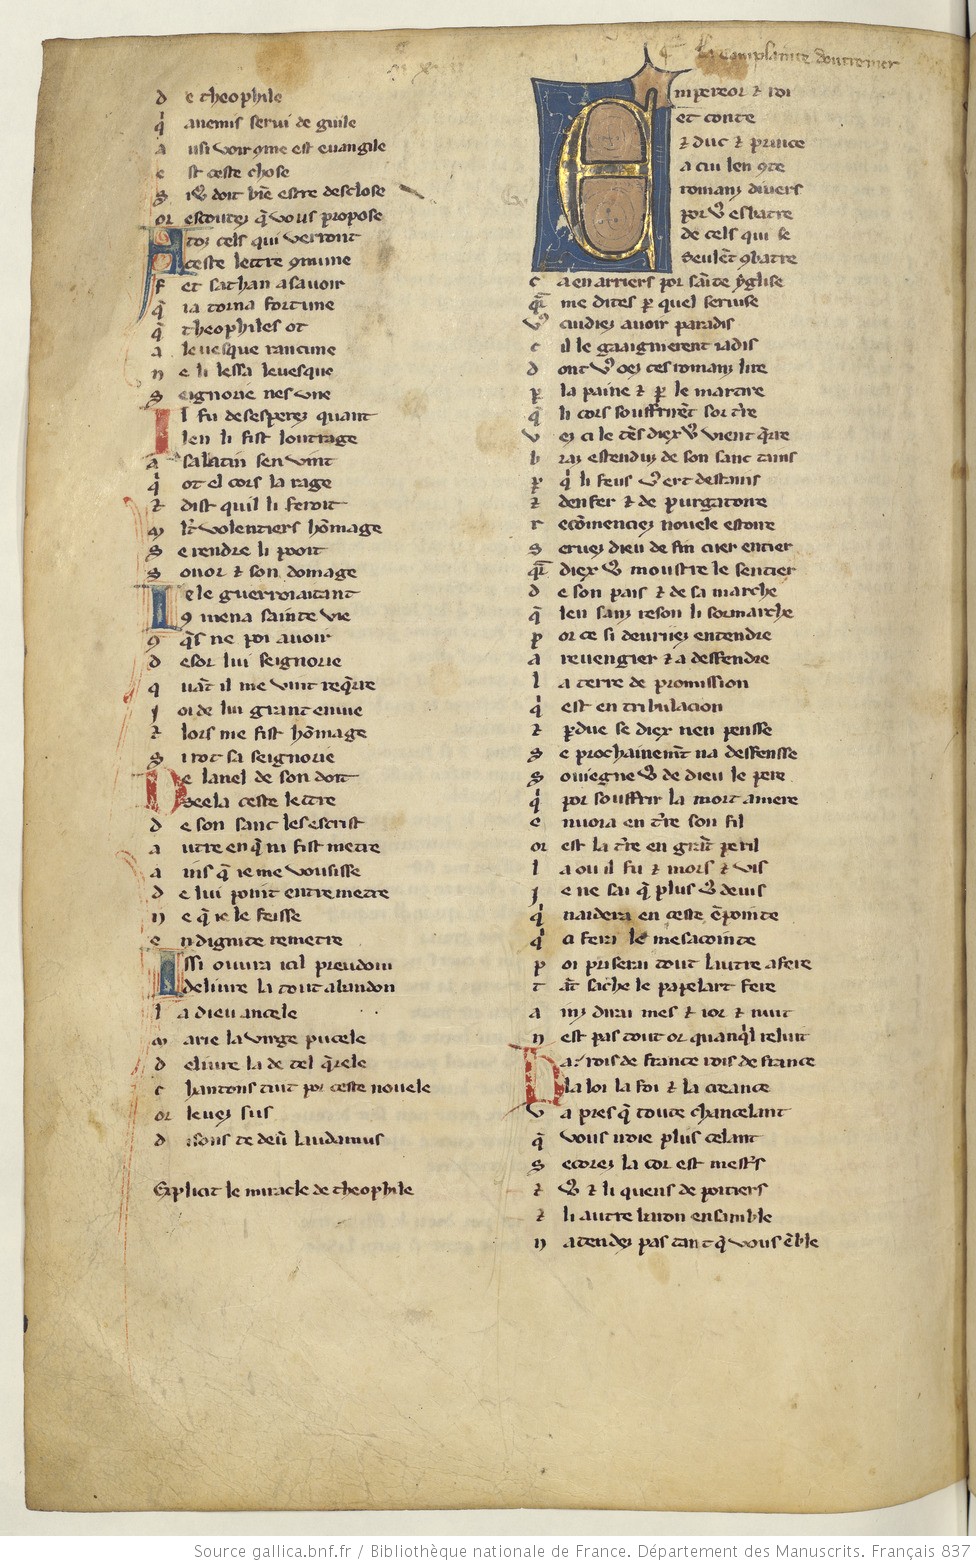 De theophile
Q' anemis serui de guile
Ausi voir 9me est euangile
Est ceste chose
Si v9 doit bīe estre desclose
Or escoutez q̄ vous propose
A toz cels qui verront
Ceste lettre 9mune
Fet sathan asauoir
Q̄ ia torna fortune
Q̄ theophiles ot
A leuesque rancune
Ne li lessa leuesque
Seignorie nesvne
Il fu desesperez quant
len li fist loutrage
A salatin sen vint
Q' ot el cors la rage
⁊ dist quil li feroit
Ml't volentiers hōmage
Se rendre li pooit
Sonor ⁊ son domage
Je le guerroiai tant
9 mena sainte vie
9ques ne poi auoir
Desor lui seignorie
Quāt il me vint req̄rre
Joi de lui grant enuie
⁊ lors me fist hōmage
Si rot sa seignorie
De lanel de son doit
Seela ceste lettre
De son sanc les escrist
Autre enq̄ ni fist metre
Ains q̄ ie me vousisse
De lui point entremetre
Ne q̄ ie le feisse
En dignite remetre
Issi ouura icil preudom
Deliure la tout a bandon
La dieu ancele
Marie la virge pucele
Deliure la de tel q̄rele
Chantons tuit por ceste nouele
Or leuez sus
Disons te deū laudamus
Explicit le miracle de theophile
La complainte doutremer
Empereor ⁊ roi
et conte
⁊ duc ⁊ prince
a cui len 9te
romanz diuers
por v9 esbatre
de cels qui se
seulēt 9batre
Ca en arriers por saīte yglise
Q̄r me dites p̱ quel seruise
Vous cuidiez auoir paradis
Cil le gaaignierent iadis
Dont v9 oez ces romanz lire
P̱ la paine ⁊ p̱ le martire
Q̄ li cors souffrirēt sor t're
Vez ci le tēs diex v9 vient q̄rre
Braz estenduz de son sanc tains
P̱ q' li feus v9 ert destains
⁊ denfer ⁊ de purgatoire
Recōmenciez nouele estoire
Seruez dieu de fin cuer entier
Q̄r diex v9 moustre le sentier
De son pais ⁊ de sa marche
Q̄ len sanz reson li sormarche
Por ce si deuriiez entendre
A reuengier ⁊ a deffendre
La terre de promission
Q' est en tribulacion
⁊ p̱due se diex nen pensse
Se prochainemēt na deffensse
Souiegne v9 de dieu le pere
Q' por souffrir la mort amere
Enuoia en t're son fil
Or est la t're en grāt peril
La ou il fu ⁊ mors ⁊ vis
Je ne sai q̄ plus v9 deuis
Q' naidera en ceste ēpointe
Q' ci fera le mesacointe
Poi priserai tout lautre afere
Tāt sache le papelart fere
Ainz dirai mes ⁊ ior ⁊ nuit
Nest pas tout or quanq'l reluit
Ha rois de france rois de france
La loi la foi ⁊ la creance
Va pres q̄ toute chancelant
Q̄ vous iroie plus celant
Secorez la cor est mest's
⁊ v9 ⁊ li quens de poitiers
⁊ li autre baron ensamble
Natendez pas tant q̄ vous ēble
Source gallica.bnf.fr / Bibliothèque nationale de France. Département des Manuscrits. Français 837